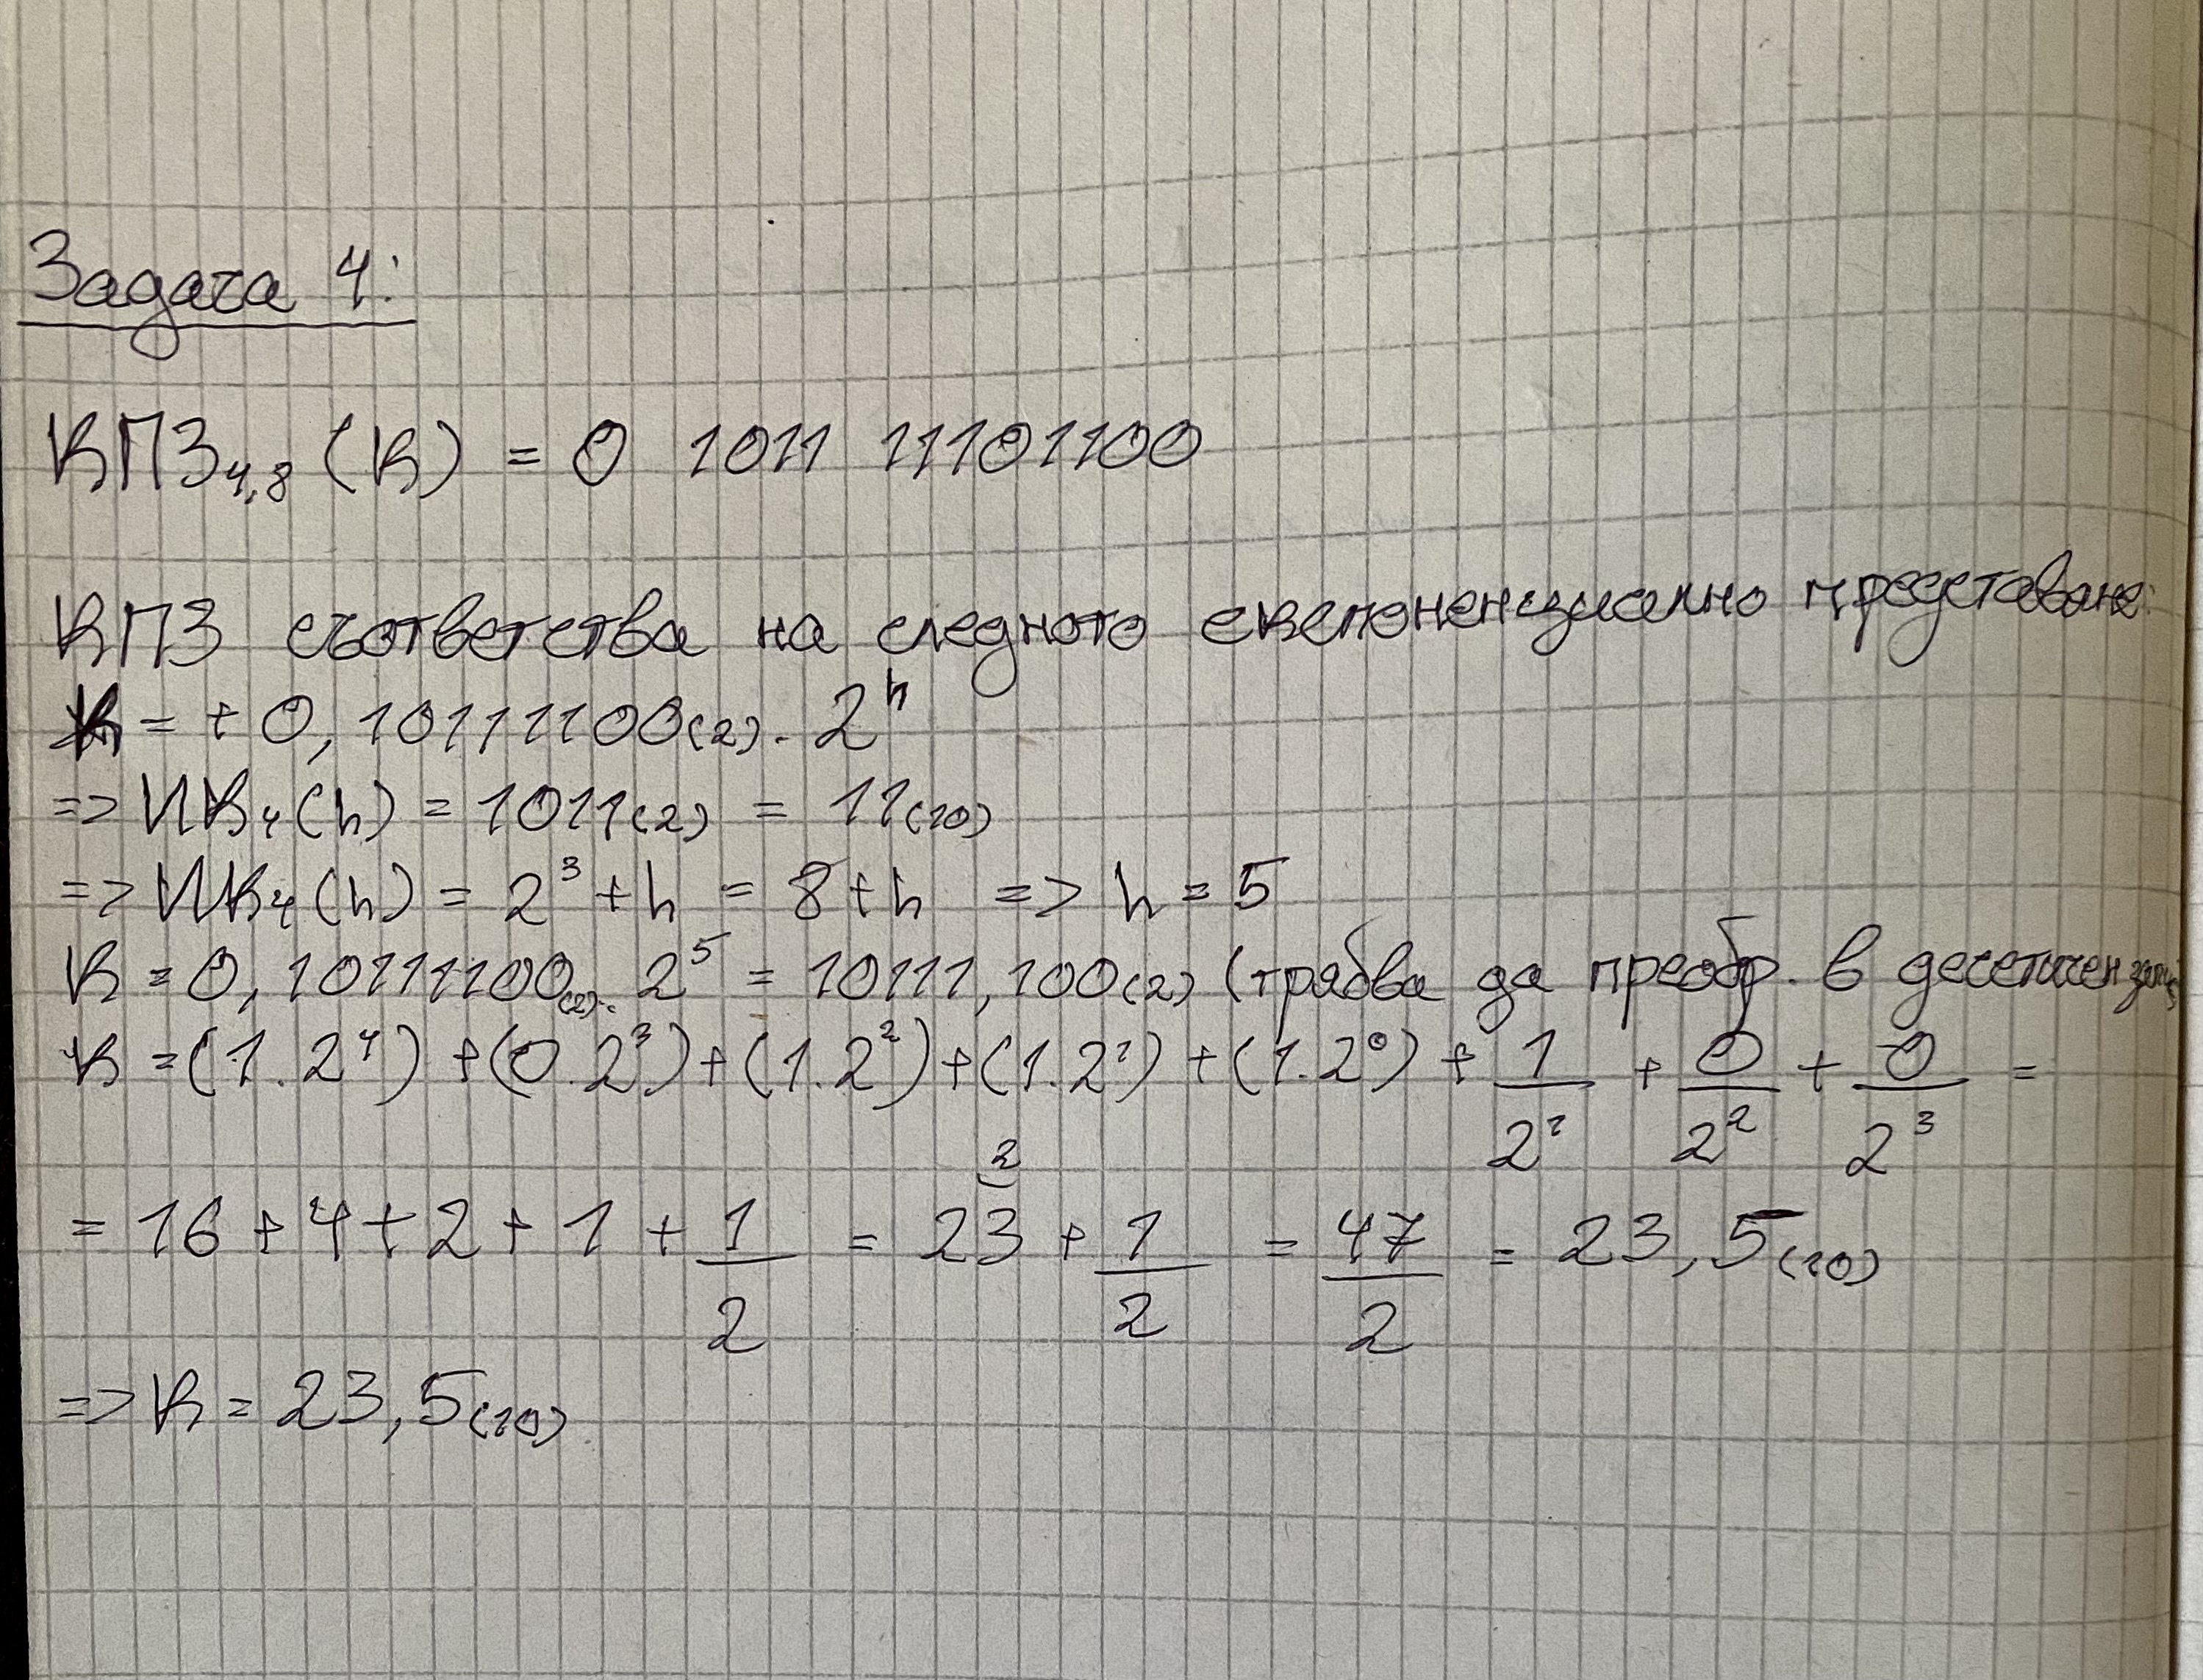 Задача 4:
КПЗ₄,₈ (К) = 0 1011 11101100
КПЗ съответства на следното експоненциално представяне:
К = + 0,10111100₍₂₎ . 2ʰ
=> ИК₄(h) = 1011₍₂₎ = 11₍₁₀₎
=> ИК₄(h) = 2³ + h = 8 + h => h = 5
К = 0,10111100₍₂₎ . 2⁵ = 10111,100₍₂₎ (трябва да преобр. в десетичен запис
К = (1.2⁴) + (0.2³) + (1.2²) + (1.2¹) + (1.2⁰) + 1/2¹ + 0/2² + 0/2³ =
= 16 + 4 + 2 + 1 + 1/2 = 23 (2 + 1/2 = 47/2 = 23,5₍₁₀₎
=> К = 23,5₍₁₀₎